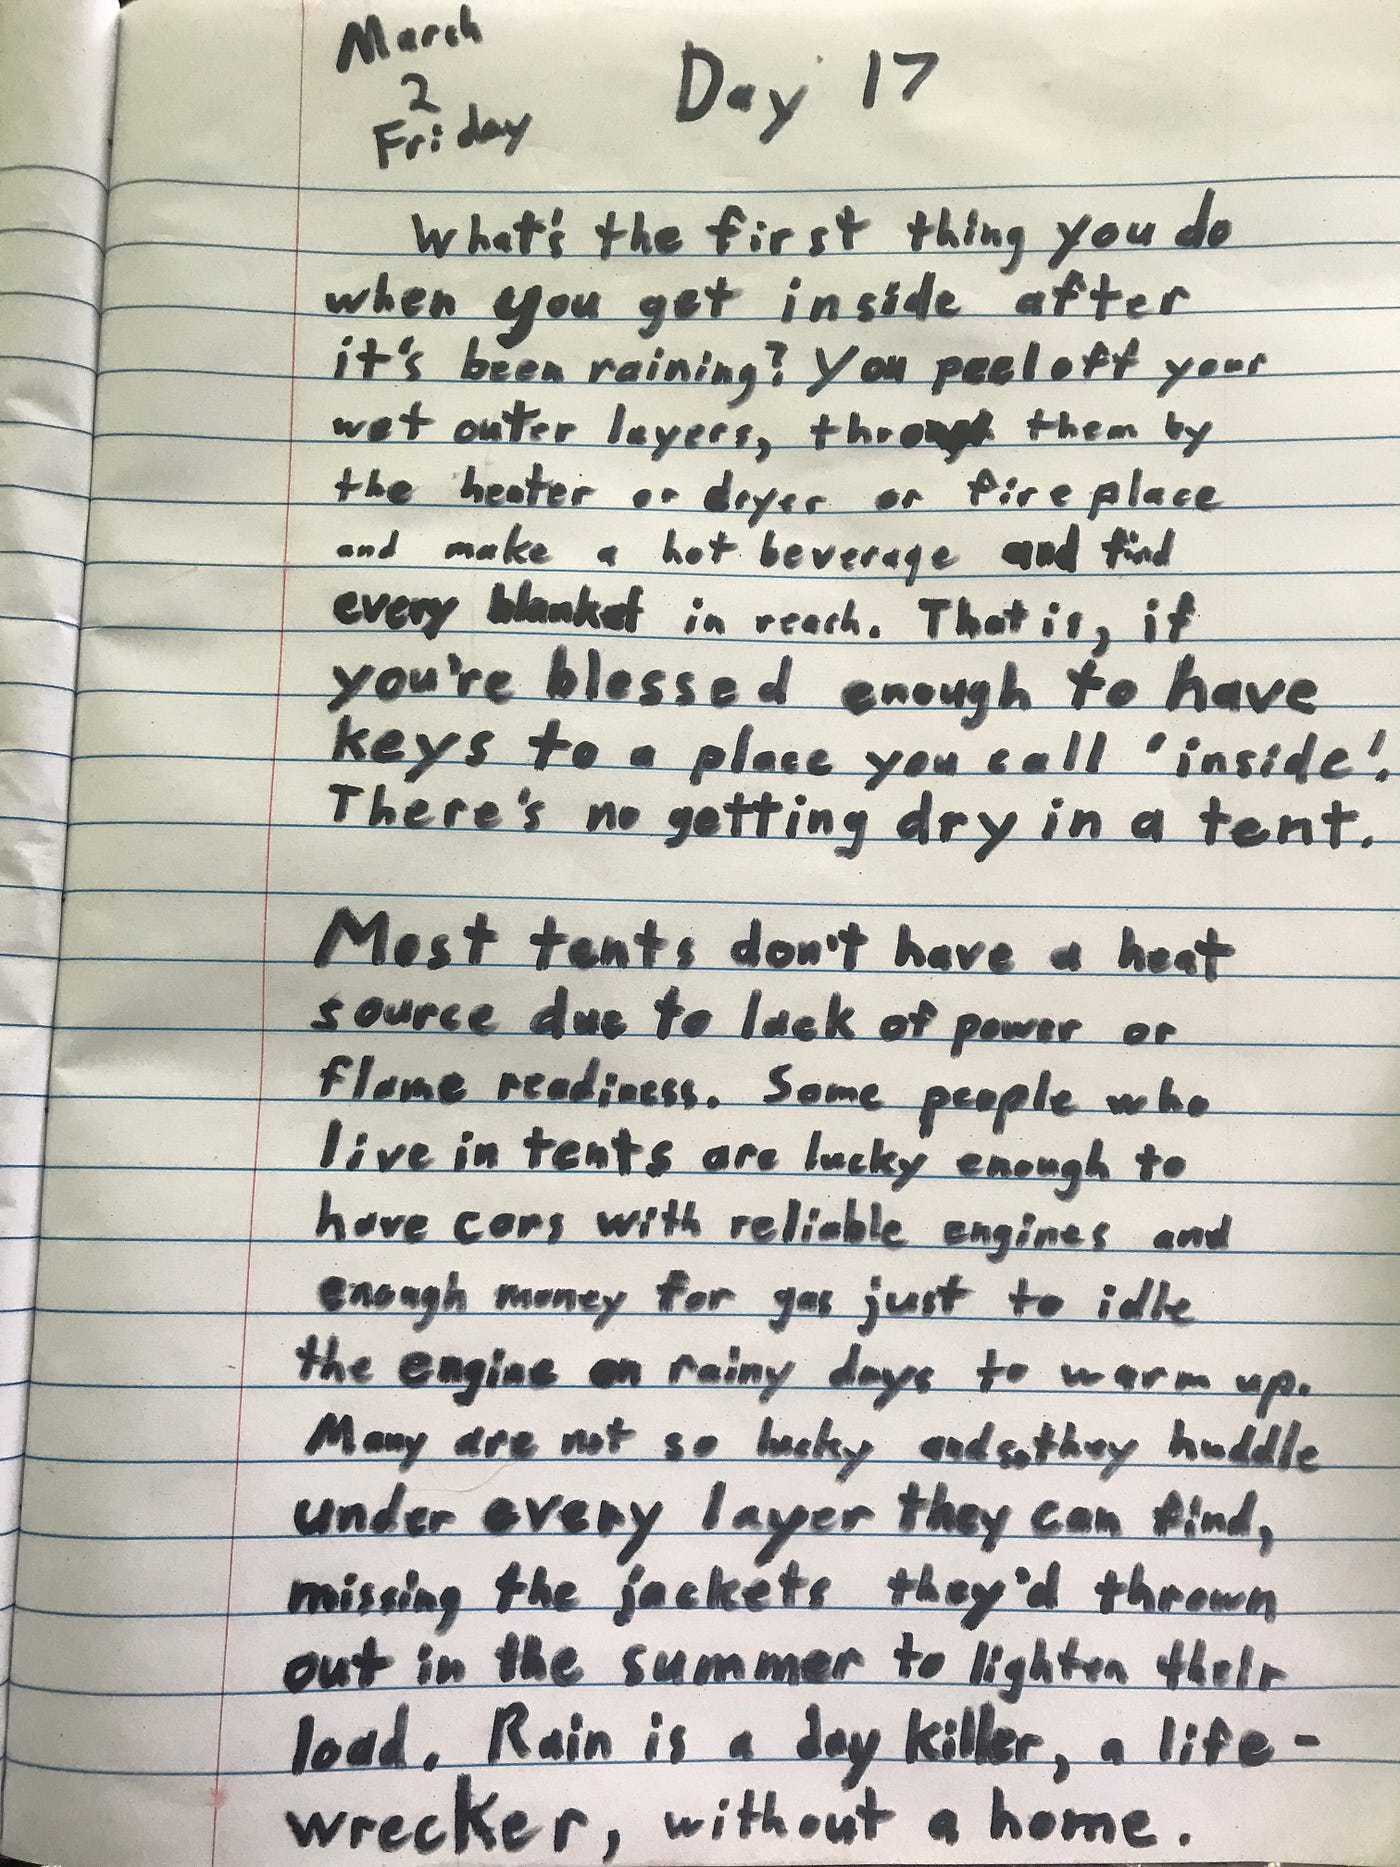 March
2
Friday
Day 17
What's the first thing you do
when you get inside after
it's been raining? You peel off your
wet outer layers, them by
the heater or dryer or fireplace
and make a hot beverage and find
every blanket in reach. That is, if
you're blessed enough to have
keys to a place you call 'inside'.
There's no getting dry in a tent.
Most tents don't have a heat
source due to lack of power or
flame readiness. Some people who
live in tents are lucky enough to
have cars with reliable engines and
enough money for gas just to idle
the engine on rainy days to warm up.
Many are not so lucky and so they huddle
under every layer they can find,
missing the jackets they'd thrown
out in the summer to lighten their
load. Rain is a day killer, a life-
wrecker, without a home.